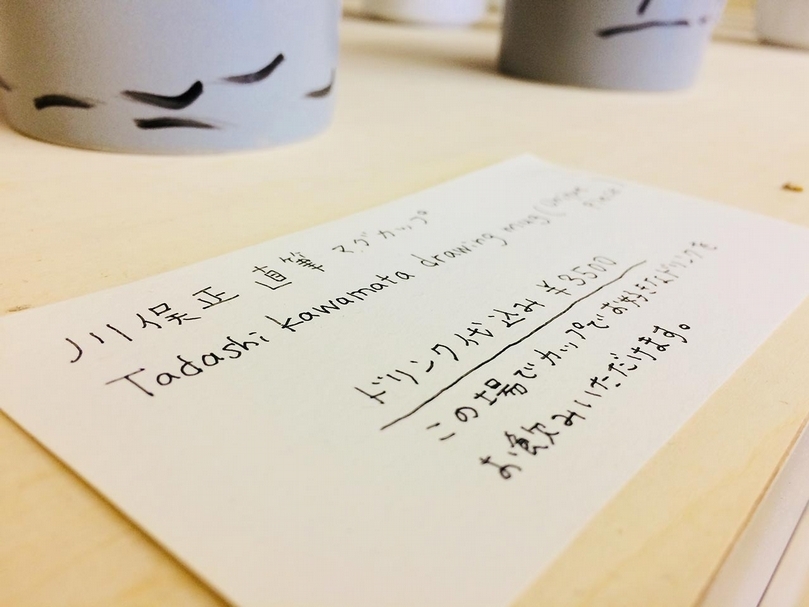 川俣正 直筆 マグカップ
Tadashi Kawamata drawing mug (unique piece)
ドリンク代込み ¥3500
この場でカップでお好きなドリンクを
お飲みいただけます。